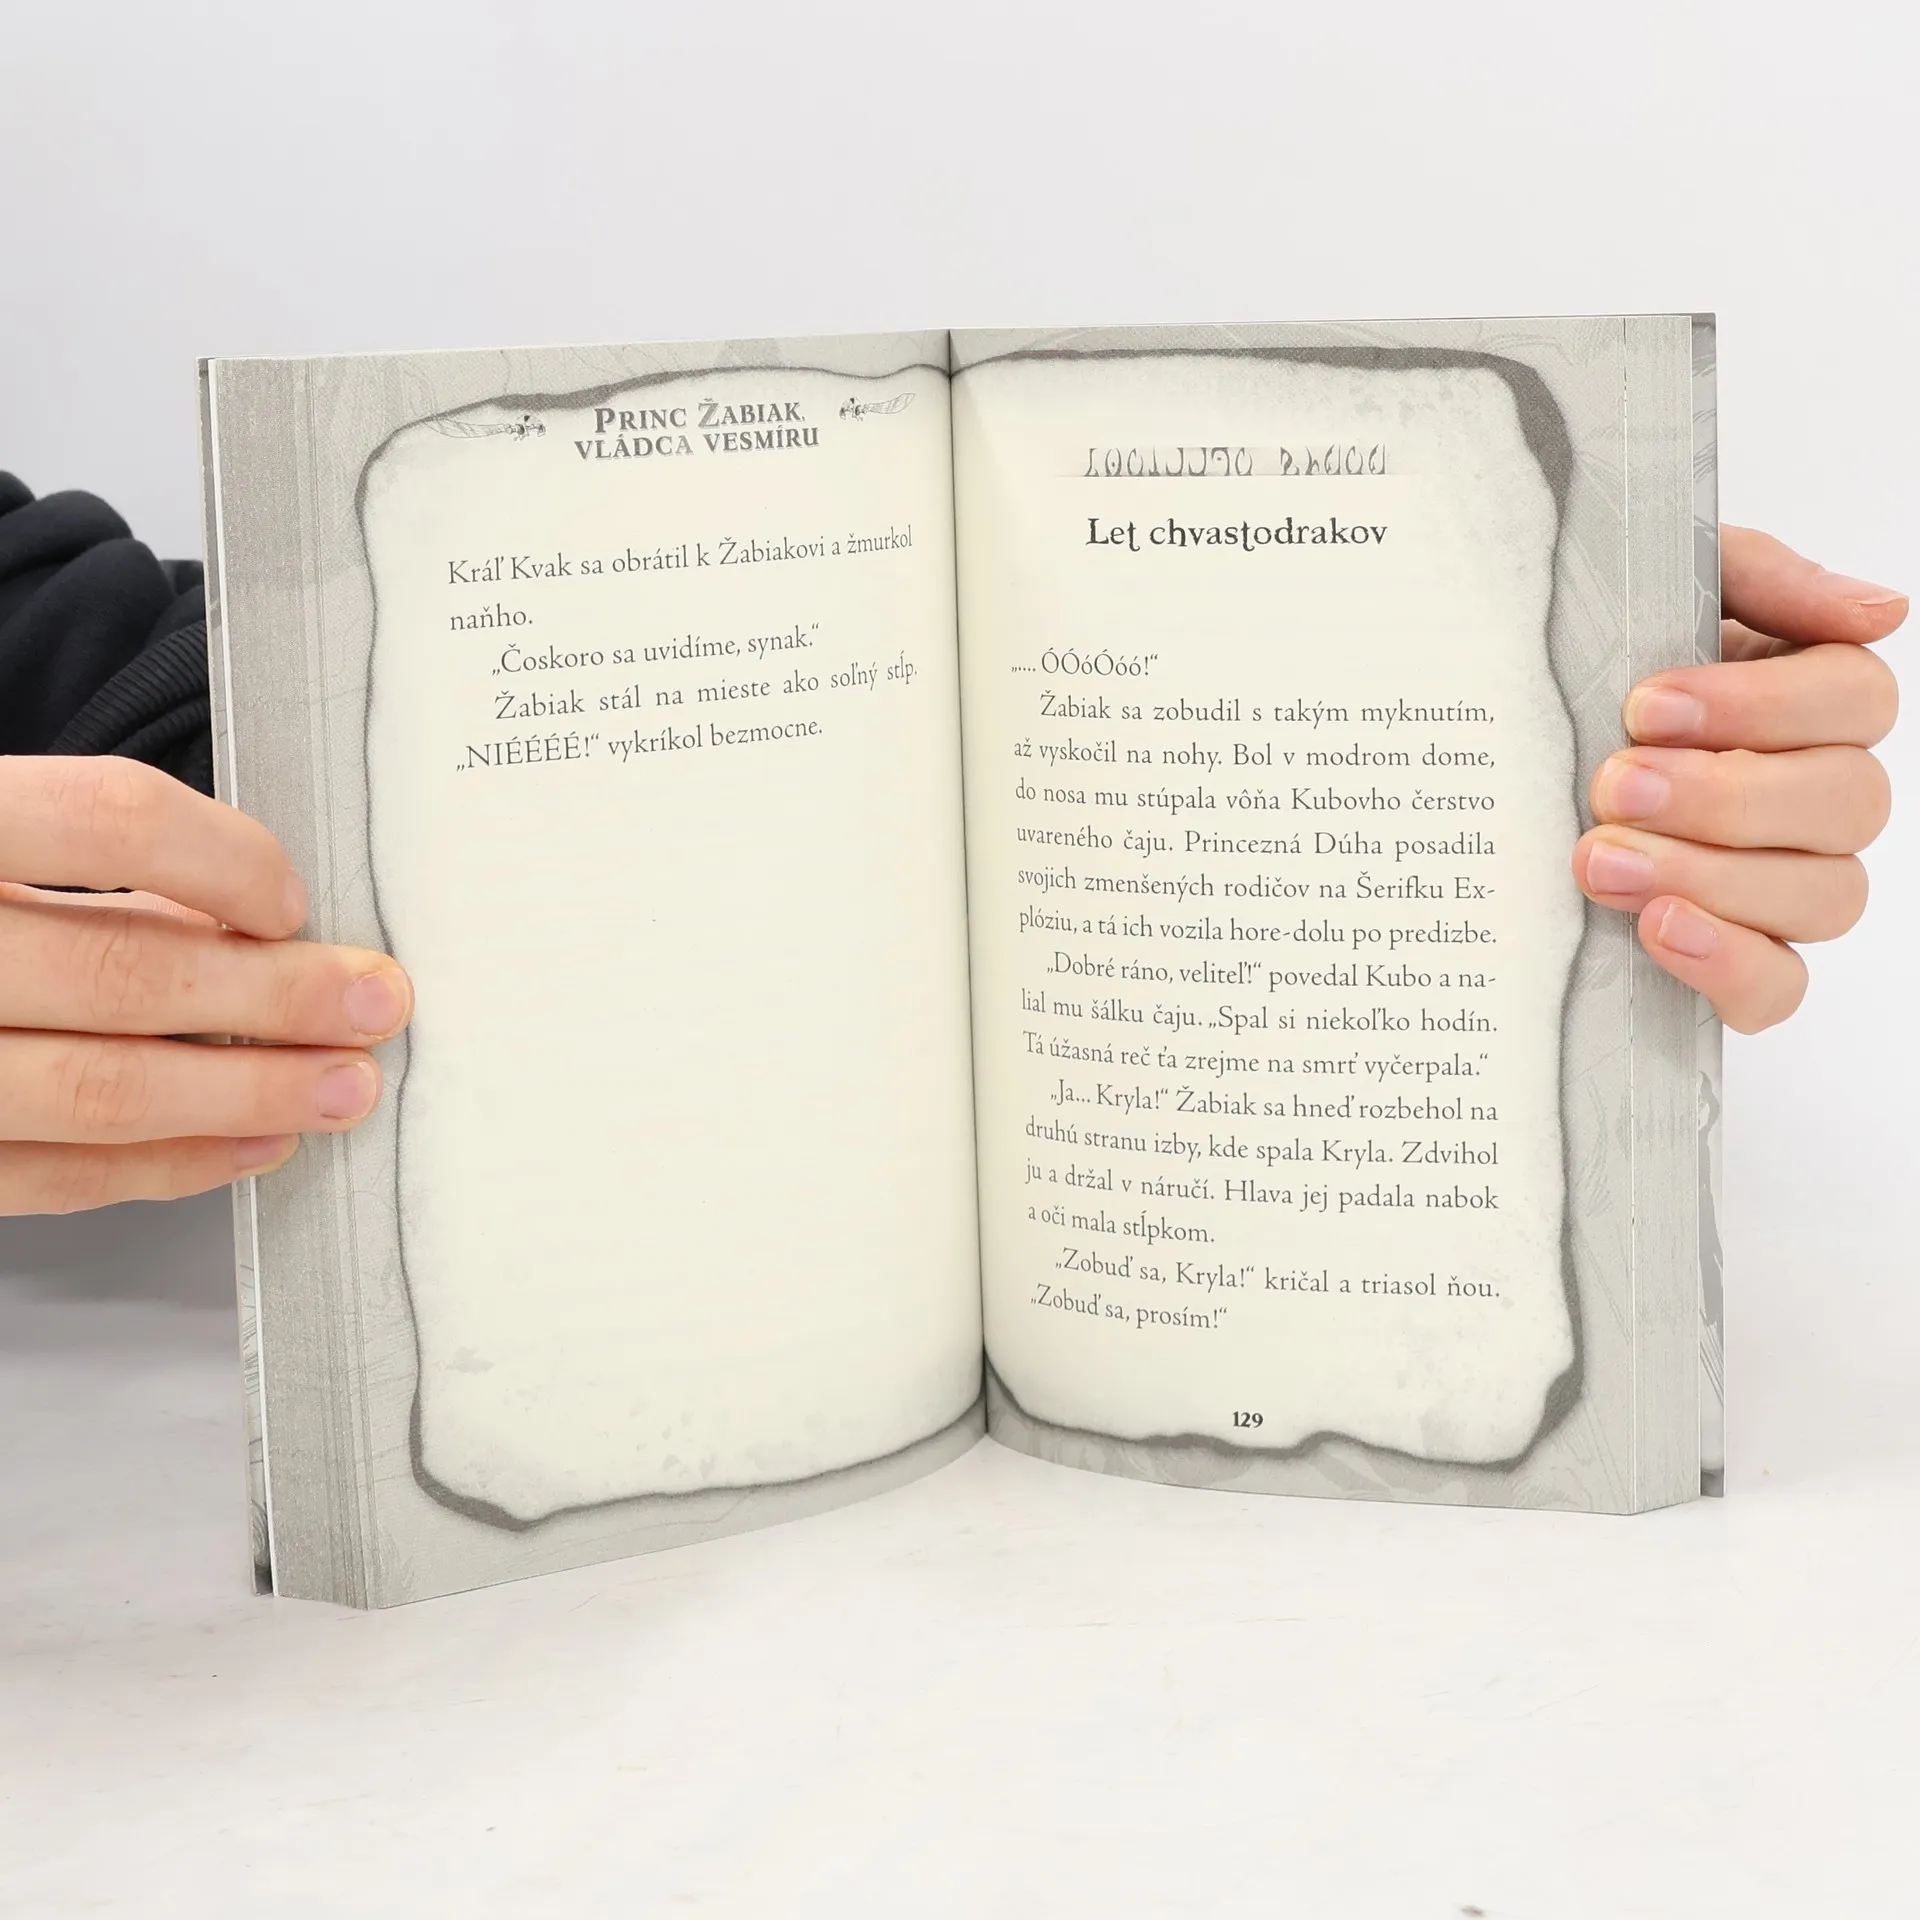 PRINC ŽABIAK,
VLÁDCA VESMÍRU
Kráľ Kvak sa obrátil k Žabiakovi a žmurkol
naňho.
„Čoskoro sa uvidíme, synak.“
Žabiak stál na mieste ako soľný stĺp.
„NIÉÉÉÉ!“ vykríkol bezmocne.
Let chvastodrakov
„.... ÓÓóÓóó!“
Žabiak sa zobudil s takým myknutím,
až vyskočil na nohy. Bol v modrom dome,
do nosa mu stúpala vôňa Kubovho čerstvo
uvareného čaju. Princezná Dúha posadila
svojich zmenšených rodičov na Šerifku Ex-
plóziu, a tá ich vozila hore-dolu po predizbe.
„Dobré ráno, veliteľ!“ povedal Kubo a na-
lial mu šálku čaju. „Spal si niekoľko hodín.
Tá úžasná reč ťa zrejme na smrť vyčerpala.“
„Ja... Kryla!“ Žabiak sa hneď rozbehol na
druhú stranu izby, kde spala Kryla. Zdvihol
ju a držal v náručí. Hlava jej padala nabok
a oči mala stĺpkom.
„Zobuď sa, Kryla!“ kričal a triasol ňou.
„Zobuď sa, prosím!“
129